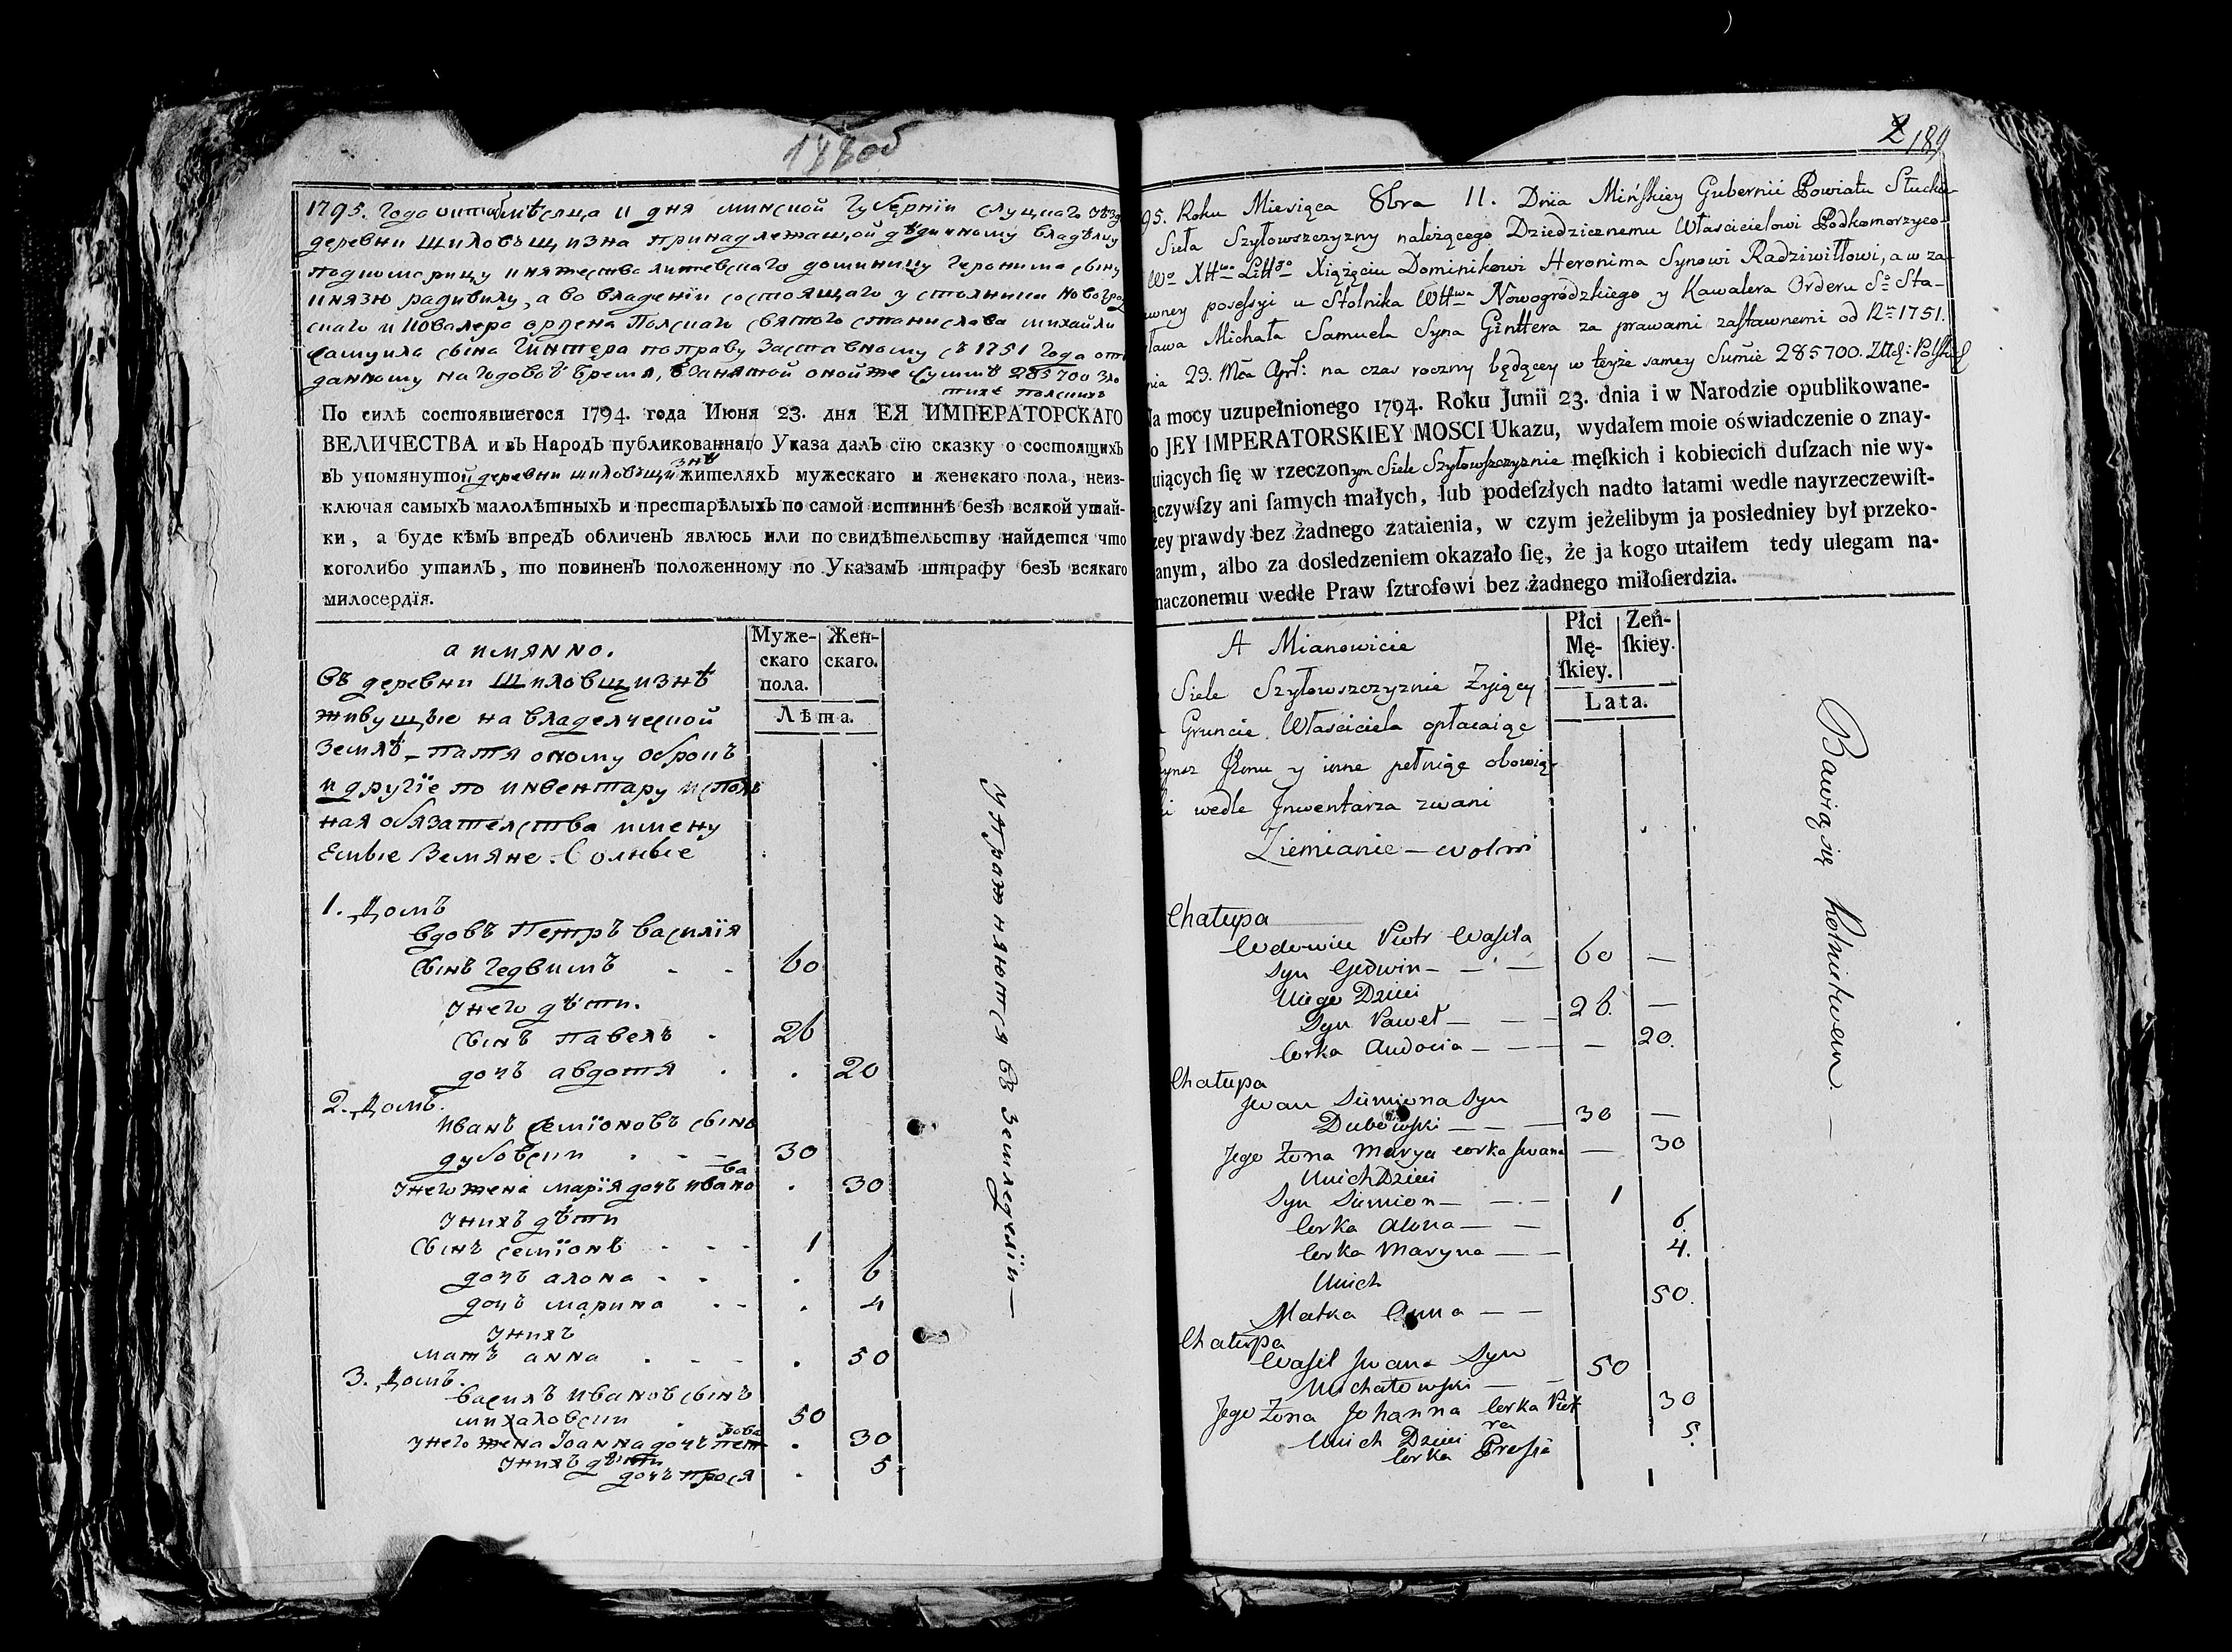 188об
1795. Года октяб мѣсяца 11 дня минской губернїи слуцкаго
деревни шиловщизна принадлежащой дѣдичному владѣлцу
подкоморицу княжества литевскаго доминику геронима сыну
князю радивилу, а во владенїи состоящаго у столника новогрод
скаго и ковалера ордена Полскаго святого станислава михайли
самуила сына Гинтера по праву заставному съ 1751 года от
данному на годовоѣ время, в занятой оной же суммѣ 285700 зло
тихъ полскихъ
По силѣ состоявшегося 1794. года Июня 23. дня ЕЯ ИМПЕРАТОРСКАГО
ВЕЛИЧЕСТВА и въ НародЪ публикованнаго Указа далЪ сїю сказку о состоящихЪ
вЪ упомянутой деревни шиловщизнѣ жителяхЪ мужескаго и женскаго пола, неиз-
ключая самыхЪ малолѣтныхЪ и престарѣлыхЪ по самой истиннѣ безЪ всякой утай-
ки, а буде кѣмЪ впредЪ обличенЪ явлюсь или по свидѣтельству найдется что
коголибо утаилЪ, то повиненЪ положенному по УказамЪ штрафу безЪ всякаго
милосердїя.
а имянно.
Муже-
скаго
пола.
Жен-
скаго.
Лѣта.
Въ деревни Шиловщизнѣ
живущые на владелческой
землѣ платя оному оброкъ
и другїе по инвентару исполъ
ная обязателства имену
Емые Земяне Волные
1. Домъ
вдовъ Петръ василїя
сынъ гедвимъ - - 60
у него дѣти.
сынъ павелъ . 26
дочъ авдотя . . 20
2. Домъ.
Иванъ семїоновъ сынъ
дубовски . - - 30
у него жена марїя дочъ ивано
ва . 30
у нихъ дѣти
сынъ семїонъ - - - 1
дочъ алона - - . 6
дочъ марина - - . 4
у нихъ
мать анна . - - . 50
3. Домъ.
василъ ивановъ сынъ
михаловски . 50
у него жена Іоанна дочъ пет
рова . 30
у нихъ дѣти
дочъ прося . 5.
Упражняются въ земледелїи —
2 189
95. Roku Miesiąca 8bra 11. Dnia Mińskiey Gubernii Powiatu Słucki-
Sieła Szyłowszczyzny należącego Dziedzicznemu Właścicielowi Podkomorzyco-
Wo XHwo Litt Xiążęciu Dominikowi Heronima Synowi Radziwiłłowi, a w za-
wney poseſsyi u Stolnika WHwa Nowogródzkiego y Kawalera Orderu So Sta-
ława Michała Samuela Syna Ginttera za prawami zaſtawnemi od R 1751.
nia 23. Mca Apr: na czas roczny będącey w teyże samey Summie 285700. Złtch: Polſkich
Na mocy uzupełnionego 1794. Roku Junii 23. dnia i w Narodzie opublikowane-
o JEY IMPERATORSKIEY MOSCI Ukazu, wydałem moie oświadczenie o znay-
uiących ſię w rzeczonym Siele Szyłowſzczyznie męſkich i kobiecich duſzach nie wy-
ączywſzy ani ſamych małych, lub podeſzłych nadto latami wedle nayrzeczewiſt-
zey prawdy bez żadnego zataienia, w czym jeżelibym ja posledniey był przeko-
anym, albo za dosledzeniem okazało ſię, że ja kogo utaiłem tedy ulegam na-
naczonemu wedle Praw ſztrofowi bez żadnego miłoſierdzia.
A Mianowicie
Płci
Mę-
ſkiey.
Zeń-
ſkiey.
Lata.
Siele Szyłowszczyznie Żyiący
Gruncie Właściciela opłacaiąc
Czynsz Jemu y inne pełniąc obowią
ki wedle Jnwentarza zwani
Ziemianie — wolni
Chałupa
Wdowiec Piotr Waſila
Syn Gedwin — — — 60 —
U niego Dzieci
Syn Paweł — — — 26. —
Corka Audocia — — — — 20.
Chałupa
Jwan Siemiona Syn
Dubowſki — — — 30 —
Jego Żona Marya Corka Jwana — 30
U nich Dzieci
Syn Siemion — — — 1
Corka Alona — — 6.
Corka Maryna — — 4.
U nich
Matka Anna — — 50.
Chałupa
Waſil Jwana Syn
Michałowſki — — 50
Jego Żona Johanna Corka Piot
ra 30
U nich Dzieci
Corka Preſia 5.
Bawią się Rolnictwem —